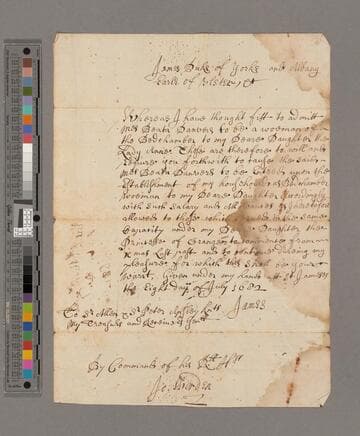 James Duke of Yorke and Albany
Earle of Ulster, &c
Whereas I have thought fitt to admitt
Mrs Beata Danvers to be a woeman of
the Bedchamber to my Deare Daughter the
Lady Anne. These are therefore to will and
require you forthwith to cause the said
Mrs Beata Danvers to be Entred upon the
Establishment of my household as Bedchamber
woeman to my Deare Daughter accordingly
with such Salary and
allowed to those which in the same
Capacity under my Daughter the
Princesse of Orange to commence from
Xmas last past and to continue during my
pleasure, for which this shall be your
Warrt. Given under my hand att St Jameses
the Eight day of July 1682
James
To Sr Allen & Sr Peter Apsley Kts
my Treasurer and Receivers Genll
By Command of his R Hss
Jo. Werden